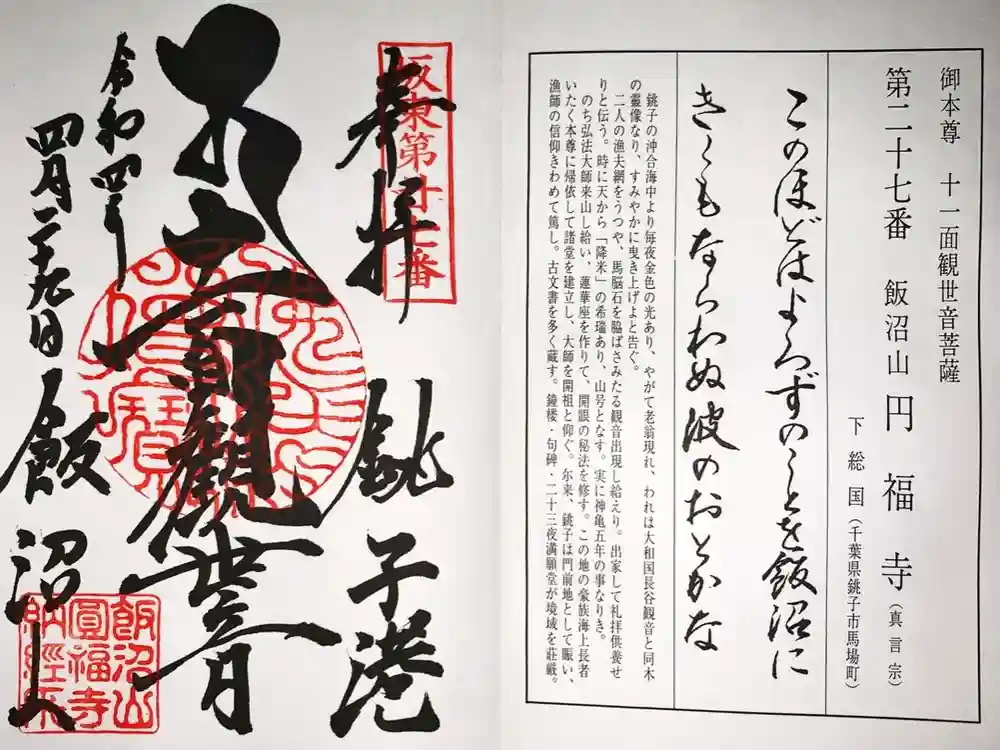 御本尊 十一面観世音菩薩
第二十七番 飯沼山 円福寺（真言宗）
下総国（千葉県銚子市馬場町）
このほどはよろづのことを飯沼に
きくもならわぬ波のおとかな
銚子の沖合海中より毎夜金色の光あり、やがて老翁現れ、われは大和国長谷観音と同木
の霊像なり、すみやかに曳き上げよと告ぐ。
二人の漁夫網をうつや、馬脳石を脇ばさみたる観音出現し給えり。出家して礼拝供養せ
りと伝う。時に天から「降米」の希瑞あり、山号となす。実に神亀五年の事なりき。
のち弘法大師来山し給い、蓮華座を作りて、開眼の秘法を修す。この地の豪族海上長者
いたく本尊に帰依して諸堂を建立し、大師を開祖と仰ぐ。尓来、銚子は門前地として賑い、
漁師の信仰きわめて篤し。古文書を多く蔵す。鐘楼・句碑・二十三夜満願堂が境域を荘厳。
坂東第廿七番
奉拝 銚子港
十一面観世音
令和四年
四月二十九日 飯沼山
飯沼山
圓福寺
納經所